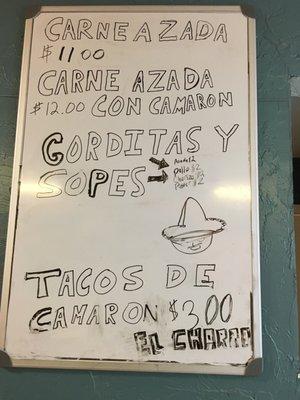 CARNE AZADA
$11.00
CARNE AZADA
$12.00 CON CAMARON
GORDITAS Y
SOPES
Asada $2
Pollo $2
$2
$2
TACOS DE
CAMARON $3.00
EL CHARRO